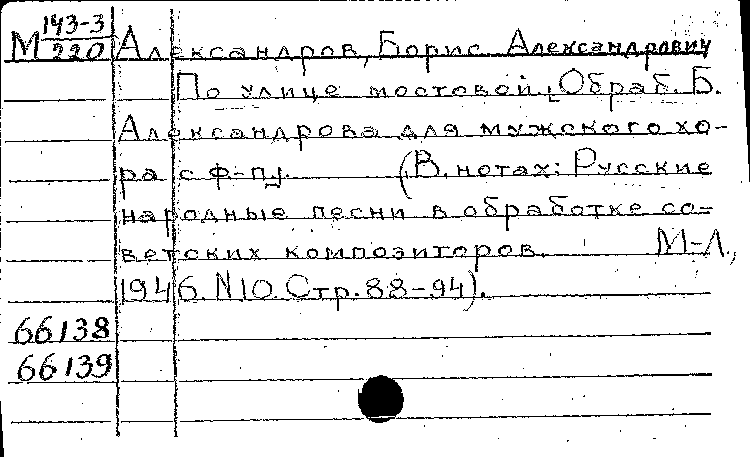 М 143-3/220 Александров, Борис Александрович
По улице мостовой. [Обраб. Б.
Александрова для мужского хо-
ра с ф-п]. (В. нотах: Русские
народные песни в обработке со-
ветских композиторов. М-Л.,
1946. N10. Стр. 88-94).
66138
66139